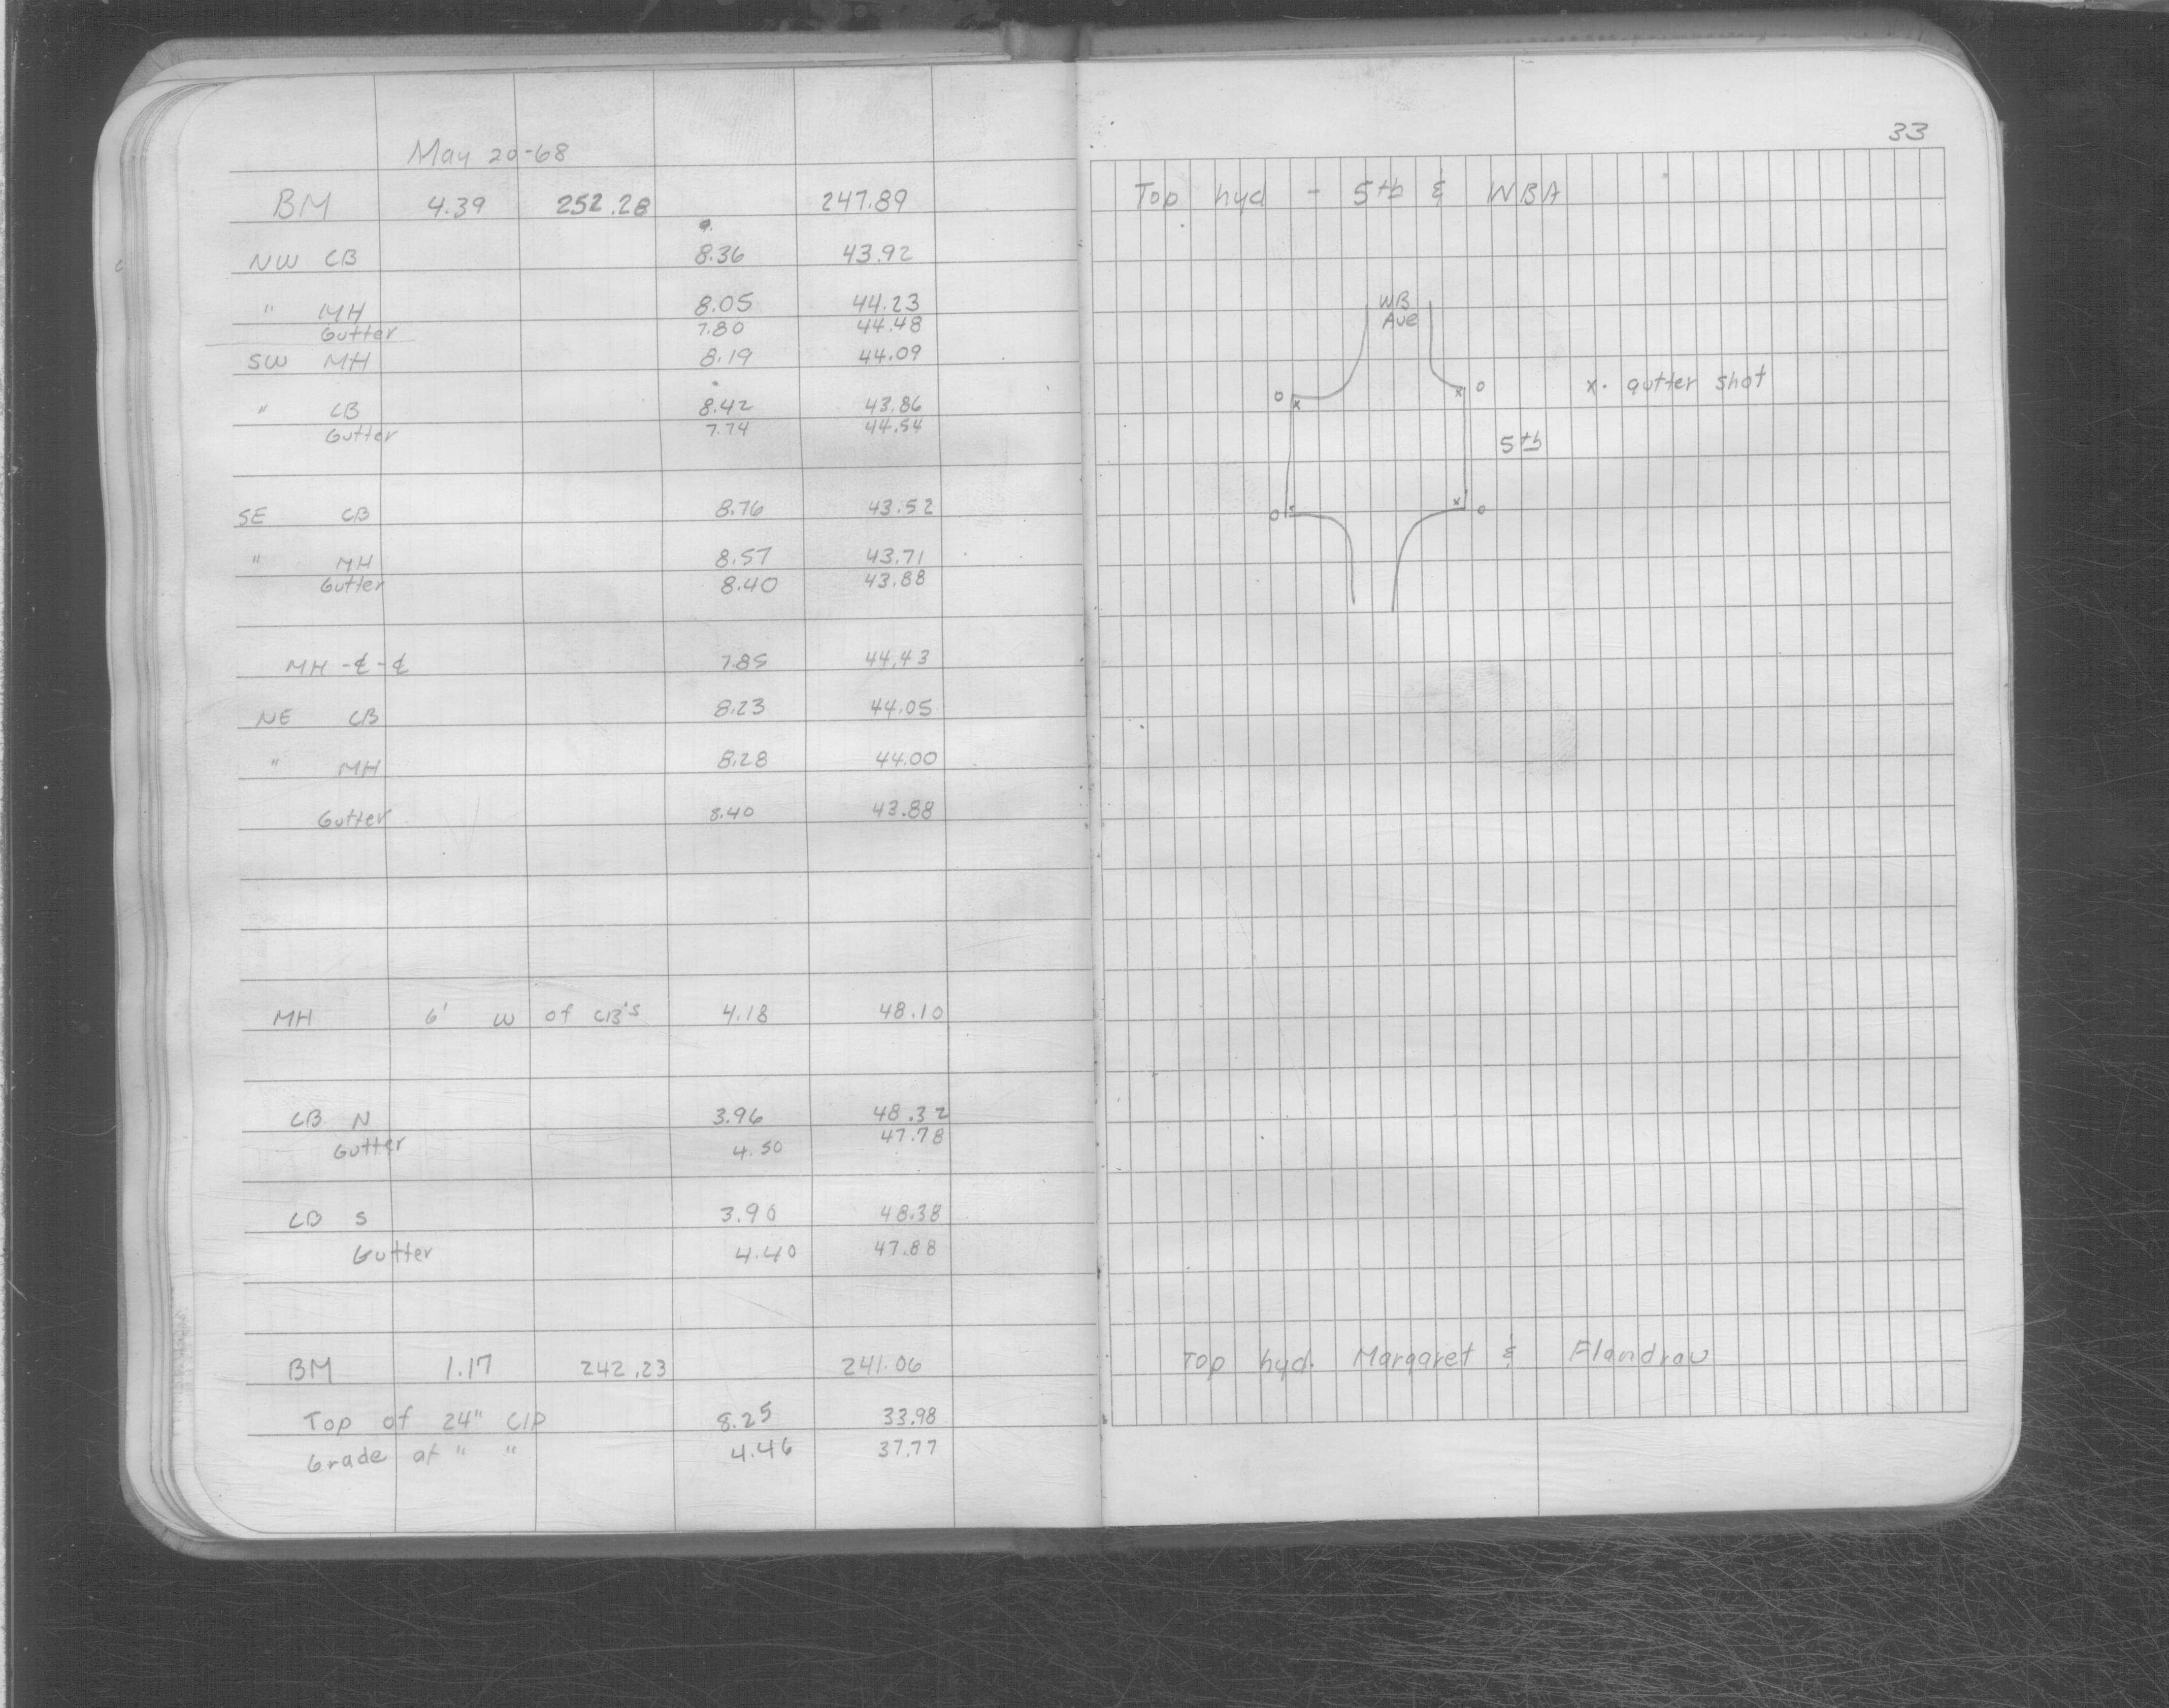 May 20-68
BM 4.39 252.28 247.89
NW CB 8.36 43.92
" MH 8.05 44.23
Gutter 7.80 44.48
SW MH 8.19 44.09
" CB 8.42 43.86
Gutter 7.74 44.54
SE CB 8.76 43.52
" MH 8.57 43.71
Gutter 8.40 43.88
MH - ℄ - ℄ 7.85 44.43
NE CB 8.23 44.05
" MH 8.28 44.00
Gutter 8.40 43.88
MH 6' W of CB's 4.18 48.10
CB N 3.96 48.32
Gutter 4.50 47.78
CB S 3.90 48.38
Gutter 4.40 47.88
BM 1.17 242.23 241.06
Top of 24" CIP 8.25 33.98
Grade at " " 4.46 37.77
33
Top hyd - 5th & WBA
WB
Ave
x. gutter shot
5th
Top hyd. Margaret & Flandrau